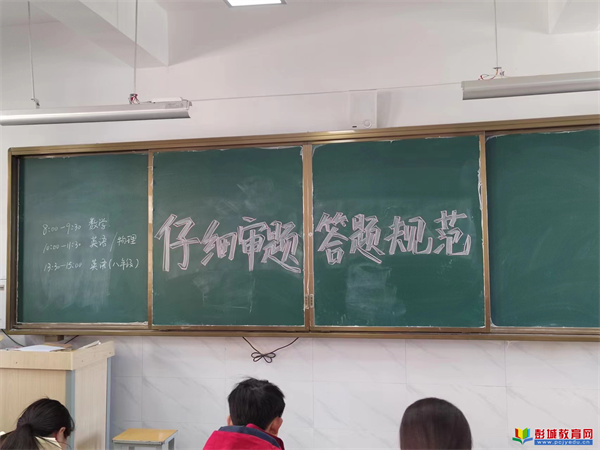 8:00-9:30 数学
10:00-11:30 英语/物理
13:30-15:00 英语(八年级)
仔细审题 答题规范
彭城教育网
www.pcjyedu.cn